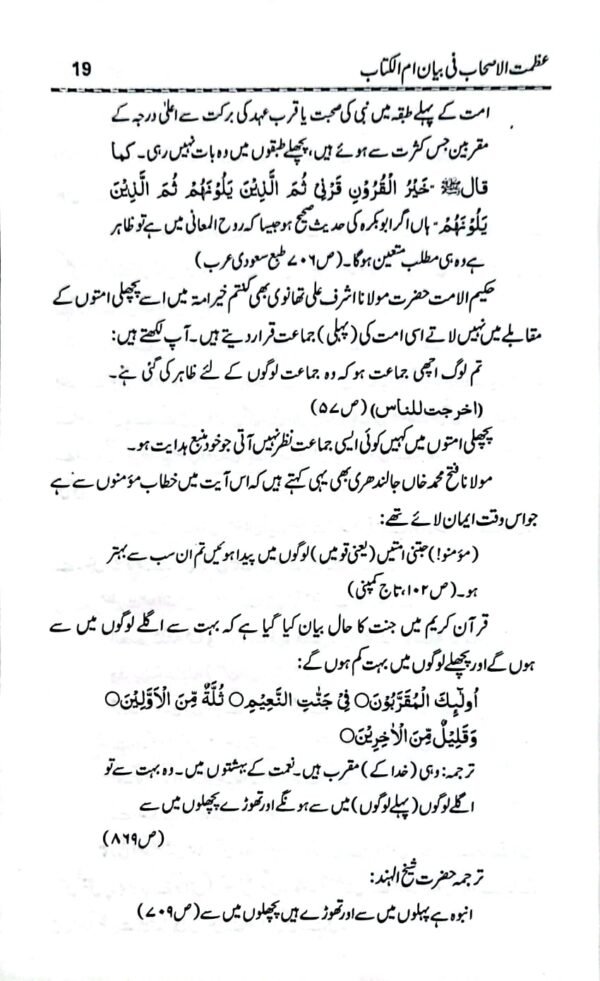 عظمت الاصحاب فی بیان ام الکتاب 19
امت کے پہلے طبقہ میں نبی کی صحبت یا قرب عہد کی برکت سے اعلیٰ درجہ کے
مقربین جس کثرت سے ہوئے ہیں، پچھلے طبقوں میں وہ بات نہیں رہی۔ کما
قال ﷺ "خَیْرُ الْقُرُوْنِ قَرْنِیْ ثُمَّ الَّذِیْنَ یَلُوْنَهُمْ ثُمَّ الَّذِیْنَ
یَلُوْنَهُمْ" ہاں اگر ابوبکرہ کی حدیث صحیح ہو جیسا کہ روح المعانی میں ہے تو ظاہر
ہے وہ ہی مطلب متعین ہوگا۔ (ص ۷۰۶ طبع سعودی عرب)
حکیم الامت حضرت مولانا اشرف علی تھانوی بھی کنتم خیر امۃ میں اسے پچھلی امتوں کے
مقابلے میں نہیں لاتے اسی امت کی (پہلی) جماعت قرار دیتے ہیں۔ آپ لکھتے ہیں:
تم لوگ اچھی جماعت ہو کہ وہ جماعت لوگوں کے لئے ظاہر کی گئی ہے۔
(اخرجت للناس) (ص ۵۷)
پچھلی امتوں میں کہیں کوئی ایسی جماعت نظر نہیں آتی جو خود منبع ہدایت ہو۔
مولانا فتح محمد خاں جالندھری بھی یہی کہتے ہیں کہ اس آیت میں خطاب مؤمنوں سے ہے
جو اس وقت ایمان لائے تھے:
(مؤمنو!) جتنی امتیں (یعنی قومیں) لوگوں میں پیدا ہوئیں تم ان سب سے بہتر
ہو۔ (ص ۱۰۲، تاج کمپنی)
قرآن کریم میں جنت کا حال بیان کیا گیا ہے کہ بہت سے اگلے لوگوں میں سے
ہوں گے اور پچھلے لوگوں میں بہت کم ہوں گے:
اُولٰٓىِٕكَ الْمُقَرَّبُوْنَ○ فِیْ جَنّٰتِ النَّعِیْمِ○ ثُلَّةٌ مِّنَ الْاَوَّلِیْنَ○
وَقَلِیْلٌ مِّنَ الْاٰخِرِیْنَ○
ترجمہ: وہی (خدا کے) مقرب ہیں۔ نعمت کے بہشتوں میں۔ وہ بہت سے تو
اگلے لوگوں (پہلے لوگوں) میں سے ہونگے اور تھوڑے پچھلوں میں سے
(ص ۸۶۹)
ترجمہ حضرت شیخ الہند:
انبوہ ہے پہلوں میں سے اور تھوڑے ہیں پچھلوں میں سے (ص ۷۰۹)